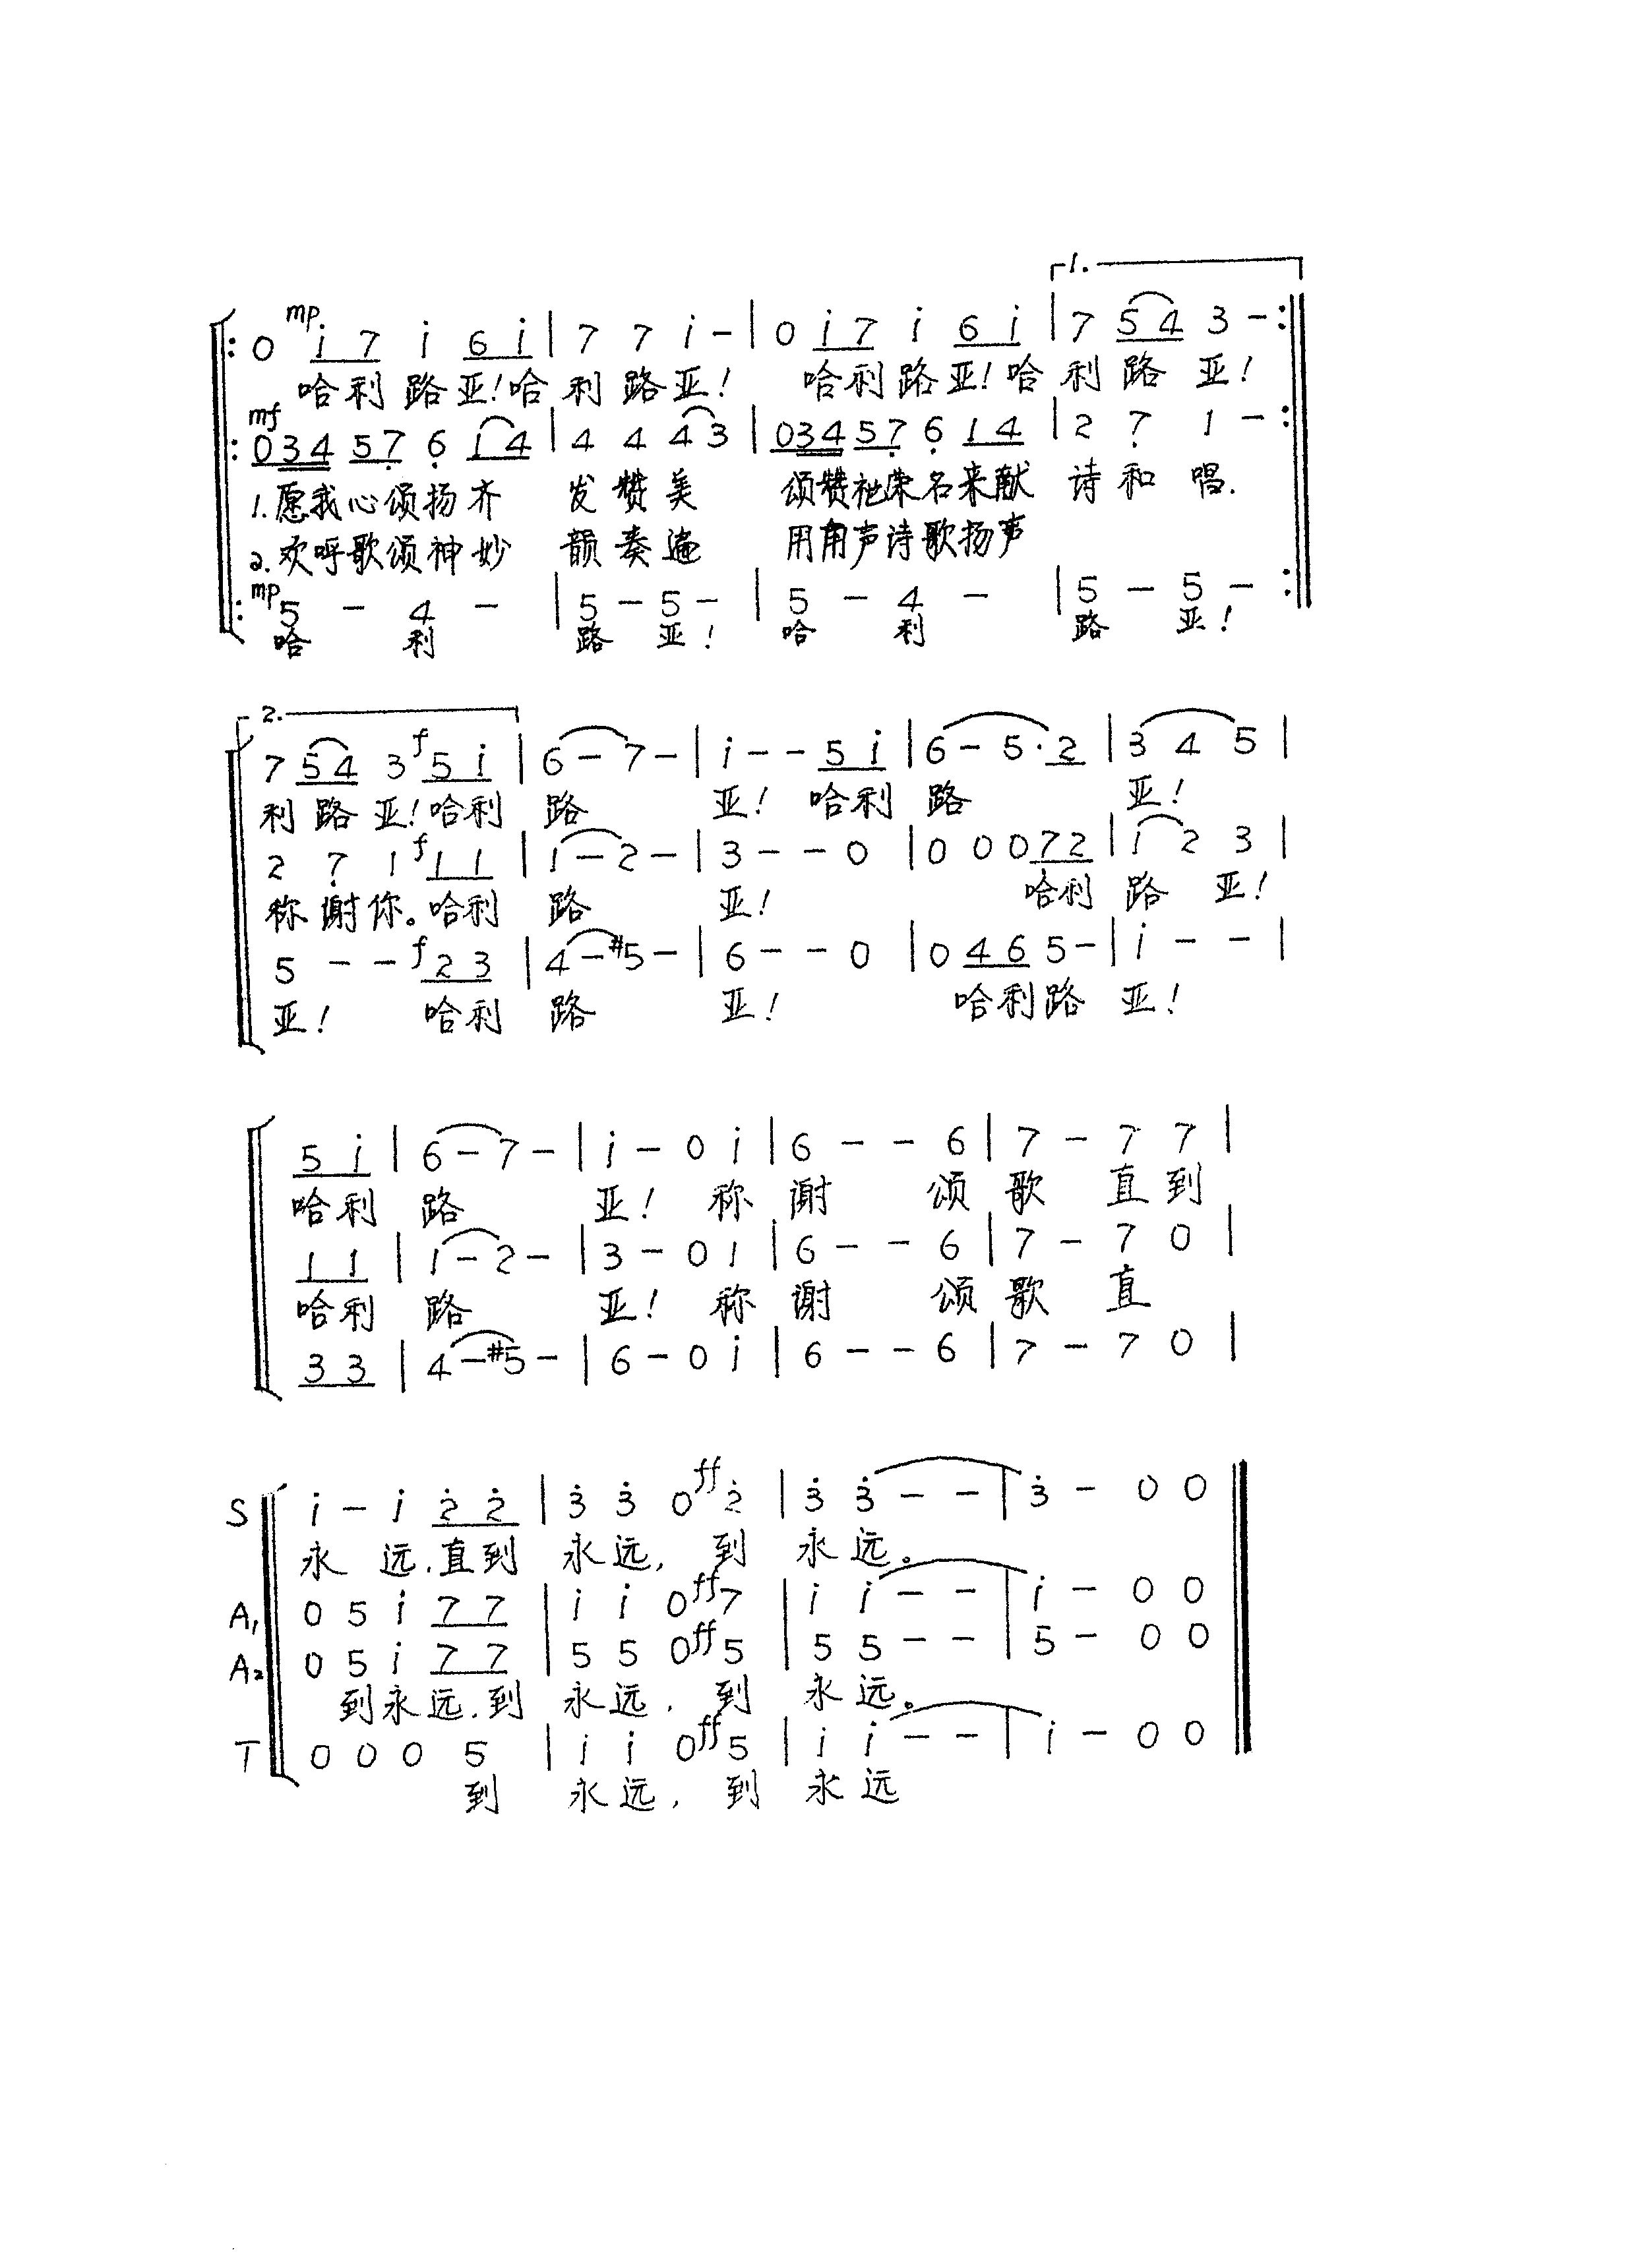 1.
mp
0 i 7 i 6 i | 7 7 i - | 0 i 7 i 6 i | 7 5 4 3 - :
哈利路亚!哈利路亚! 哈利路亚!哈利路亚!
mf
: 0 3 4 5 7 6 1 4 | 4 4 4 3 | 0 3 4 5 7 6 1 4 | 2 7 1 - :
1.愿我心颂扬齐 发赞美 颂赞祂荣名来献 诗和唱.
2.欢呼歌颂神妙 韻奏遍 用角声诗歌扬声
: mp 5 - 4 - | 5 - 5 - | 5 - 4 - | 5 - 5 - :
哈 利 路 亚! 哈 利 路 亚!
2.
7 5 4 3 f 5 i | 6 - 7 - | i - - 5 i | 6 - 5 · 2 | 3 4 5 |
利路亚!哈利 路 亚! 哈利 路 亚!
2 7 1 f 1 1 | 1 - 2 - | 3 - - 0 | 0 0 0 7 2 | 1 2 3 |
称谢你。哈利 路 亚! 哈利 路 亚!
5 - - f 2 3 | 4 - #5 - | 6 - - 0 | 0 4 6 5 - | i - - |
亚! 哈利 路 亚! 哈利路 亚!
5 i | 6 - 7 - | i - 0 i | 6 - - 6 | 7 - 7 7 |
哈利 路 亚! 称 谢 颂 歌 直到
1 1 | 1 - 2 - | 3 - 0 1 | 6 - - 6 | 7 - 7 0 |
哈利 路 亚! 称 谢 颂 歌 直
3 3 | 4 - #5 - | 6 - 0 i | 6 - - 6 | 7 - 7 0 |
S i - i 2̇ 2̇ | 3̇ 3̇ 0 ff 2̇ | 3̇ 3̇ - - | 3̇ - 0 0
永 远,直到 永远, 到 永远。
A1 0 5 i 7 7 | i i 0 ff 7 | i i - - | i - 0 0
A2 0 5 i 7 7 | 5 5 0 ff 5 | 5 5 - - | 5 - 0 0
到永远.到 永远, 到 永远。
T 0 0 0 5 | i i 0 ff 5 | i i - - | i - 0 0
到 永远, 到 永远